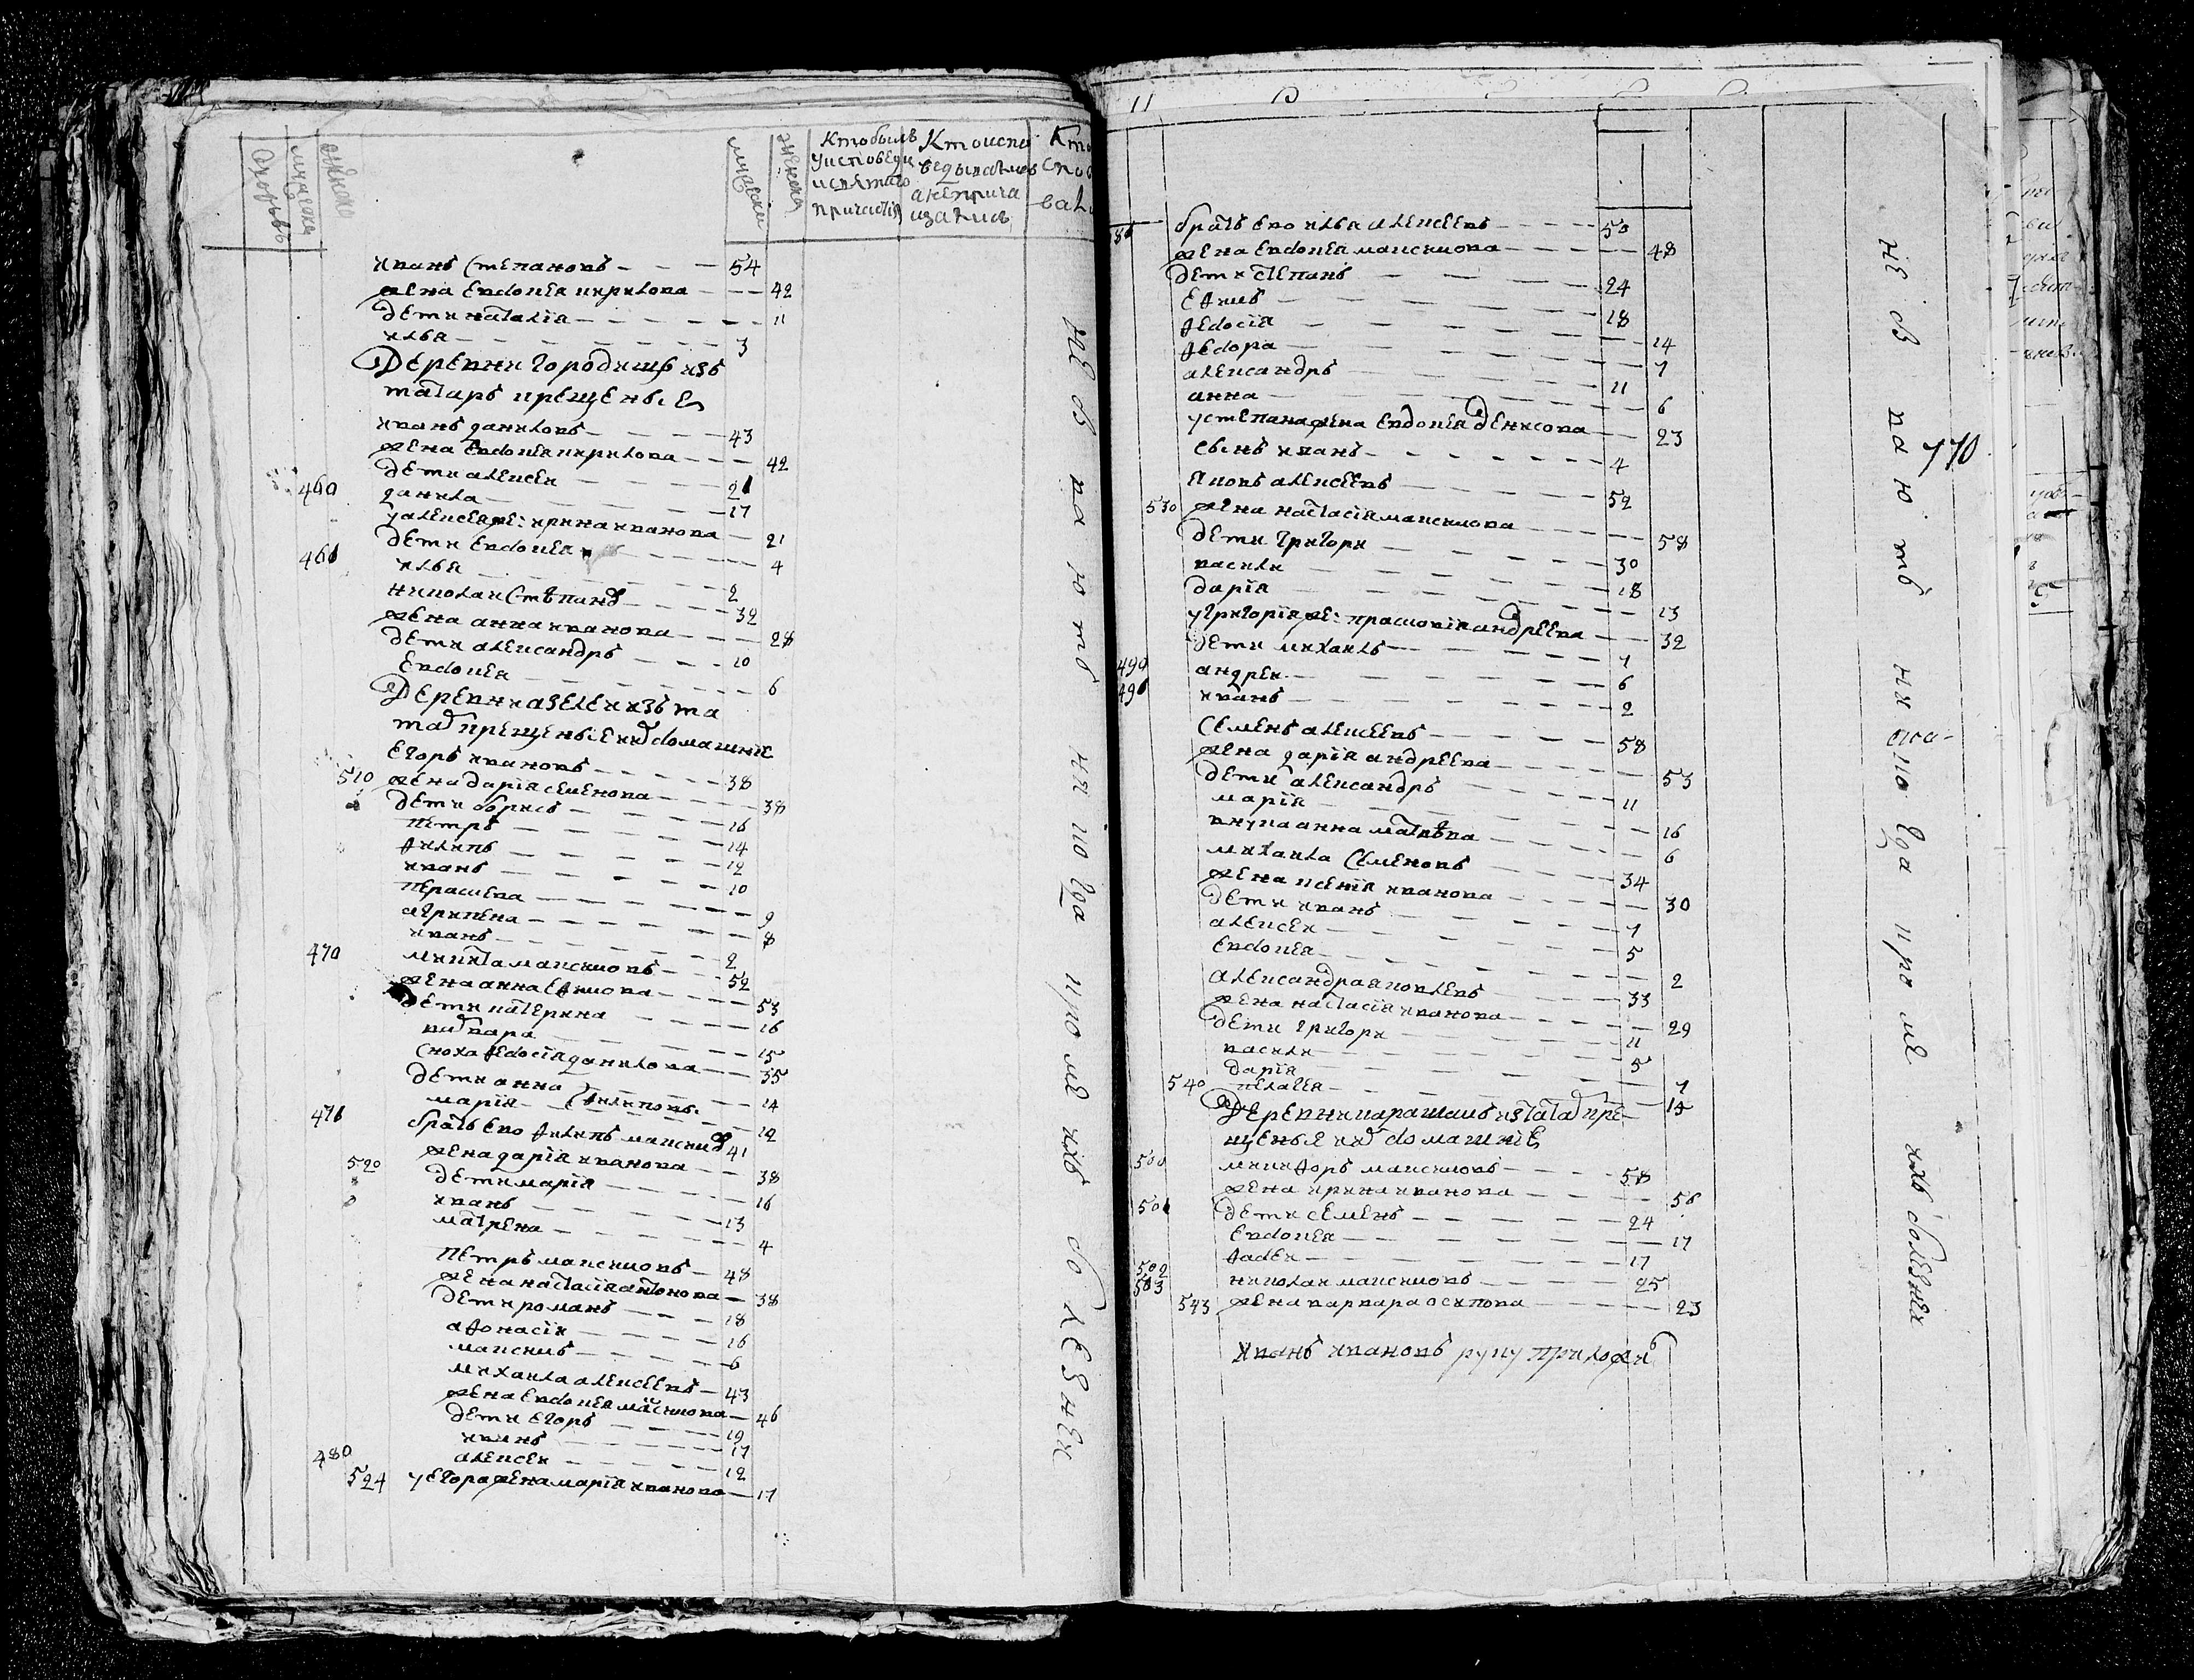 Дворовъ
мужеска
женска
мужеска
женска
Кто былъ у исповеди и святаго причастїя
Кто исповедывались а не прича щались
Иванъ Степановъ 54
жена Евдокея кирилова 42
дети наталїя 11
илья 3
Деревни Городищъ изъ
татаръ крещеныя
иванъ даниловъ 43
жена Евдокея кирилова 42
дети алексей 21
460 данила 17
у алексея же: ирина иванова 21
дети Евдокея 4
461 илья 2
николай Степанов 32
жена анна иванова 28
дети александръ 10
Евдокея 6
Деревни азелей изъ та
тар крещеныя и их домашнїе
Егоръ ивановъ 38
510 жена дарїя семенова 38
дети борисъ 16
петръ 14
филипъ 12
иванъ 10
Перасиева 9
агрипена 8
иванъ 2
470 микита максимовъ 52
жена анна Ефимова 53
дети катерина 16
варвара 15
сноха федосїя данилова 35
дети анна 14
марїя Филиповы 12
471 братъ Ево филипъ максимов 41
жена дарїя иванова 38
520 дети марїя 16
иванъ 13
матрена 4
Петръ максимовъ 48
жена настасїя антонова 38
дети романъ 18
афонасїй 16
максимъ 6
михаила алексеевъ 43
жена Евдокея максимова 46
дети Егоръ 19
иванъ 17
480 алексей 12
524 у Егора жена марїя иванова 17
не бываютъ никогда кроме ихъ болезней
братъ Ево илья алексеевъ 50
жена Евдокея максимова 48
дети степанъ 24
Ефимъ 18
федосїя 14
федора 7
александръ 11
анна 6
у степана жена Евдокея Денисова 23
сынъ иванъ 4
Яковъ алексеевъ 52
530 жена настасїя максимова 58
дети григори 30
васили 18
дарїя 13
у григорїя же: прасковїя андреева 32
дети михаилъ 7
490 андрей 6
491 иванъ 2
Семенъ алексеевъ 58
жена дарїя андреева 53
дети александръ 11
марїя 16
внука анна матвеева 6
михаила Семеновъ 34
жена ксенїя иванова 30
дети иванъ 7
алексей 5
Евдокея 2
александра яковлевъ 33
жена настасїя иванова 29
дети григори 11
васили 5
дарїя 7
540 пелагея 15
Деревни карашамъ изъ татар кре
щеныя и их домашнїе
500 микифоръ максимовъ 58
жена ирина иванова 56
501 дети семенъ 24
Евдокея 17
502 фадей 17
503 николай максимовъ 25
543 жена варвара осипова 23
Иванъ ивановъ руку приложи
не бываютъ никогда кроме ихъ болезней
770